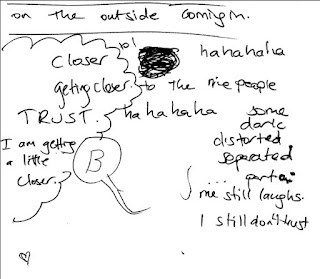 on the outside coming in.
lo!
closer
hahahaha
getting closer to the nice people
TRUST. hahahaha
some
dark
distorted
separated
.... part a
me still laughs.
I still don't trust
I am getting
a little
closer.
B